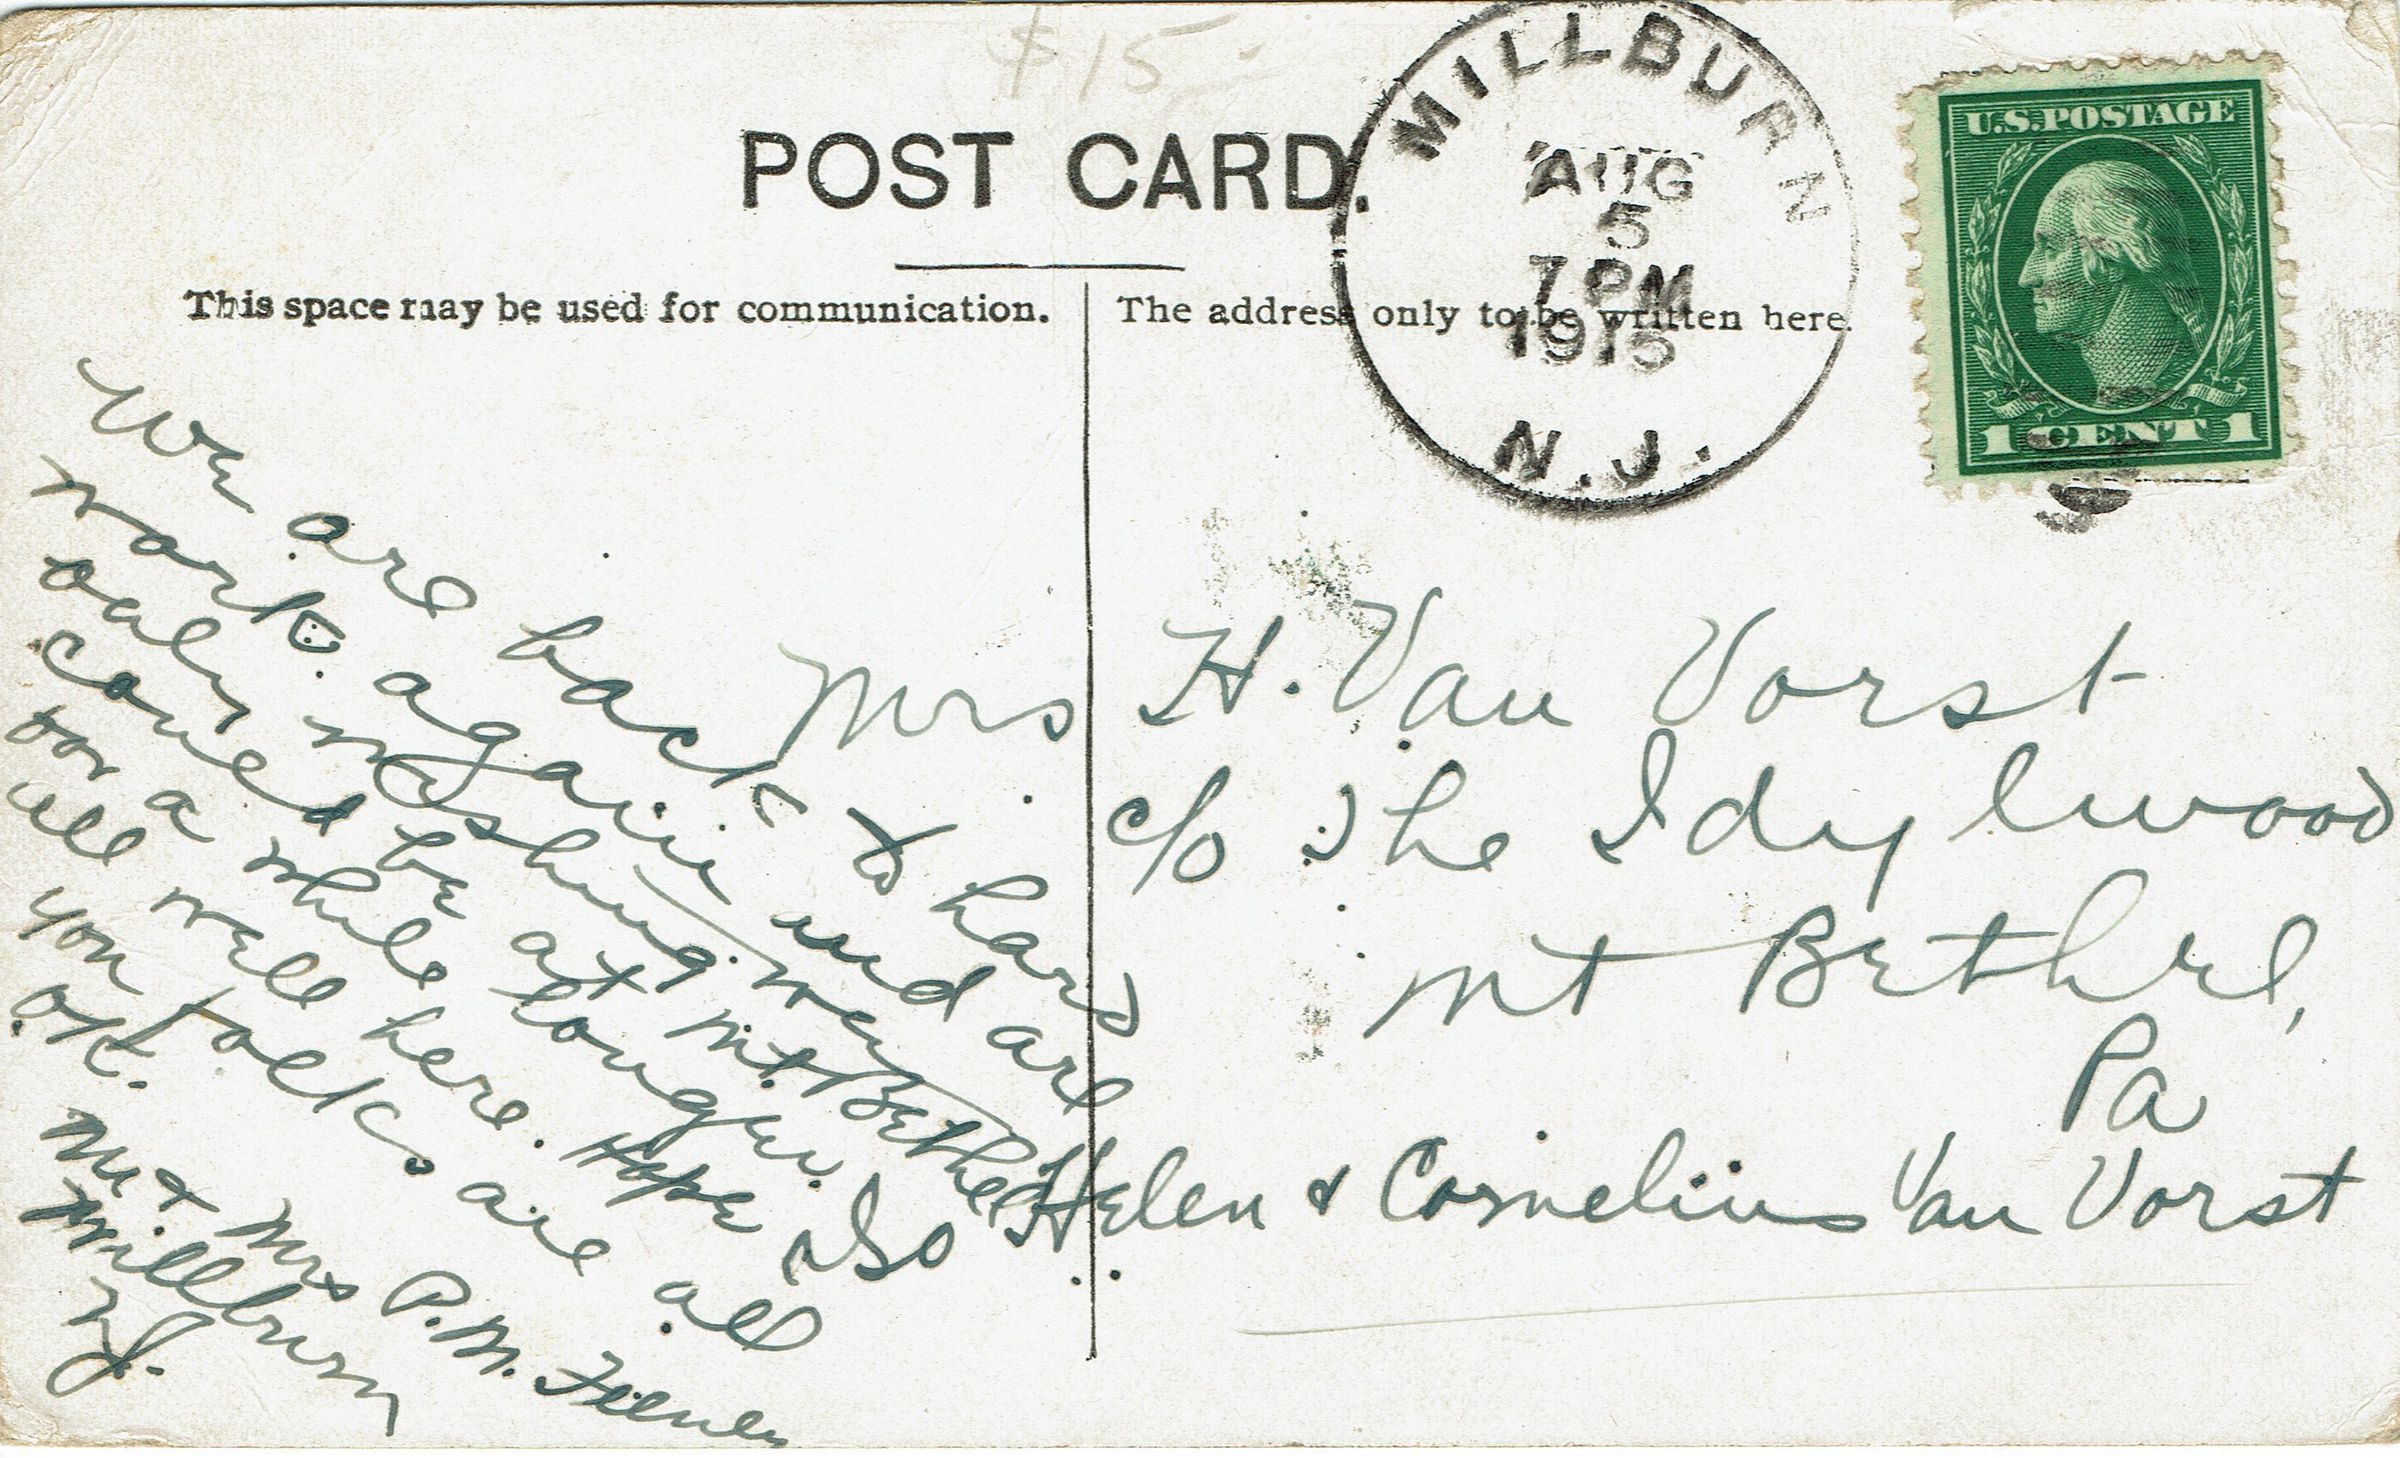 $15-
POST CARD.
MILLBURN
AUG
5
7 PM
1915
N.J.
U.S.POSTAGE
1 CENT 1
This space may be used for communication.
The address only to be written here.
We are back to hard
work again and are
only wishing we
could be at Mt Bethel
for a while longer.
all well here. Hope also
you folks are all
O.K.
Mr & Mrs P. M.
Millburn
N.J.
Mrs H. Van Vorst
c/o The Idylwood
Mt Bethel,
Pa
Helen & Cornelius Van Vorst